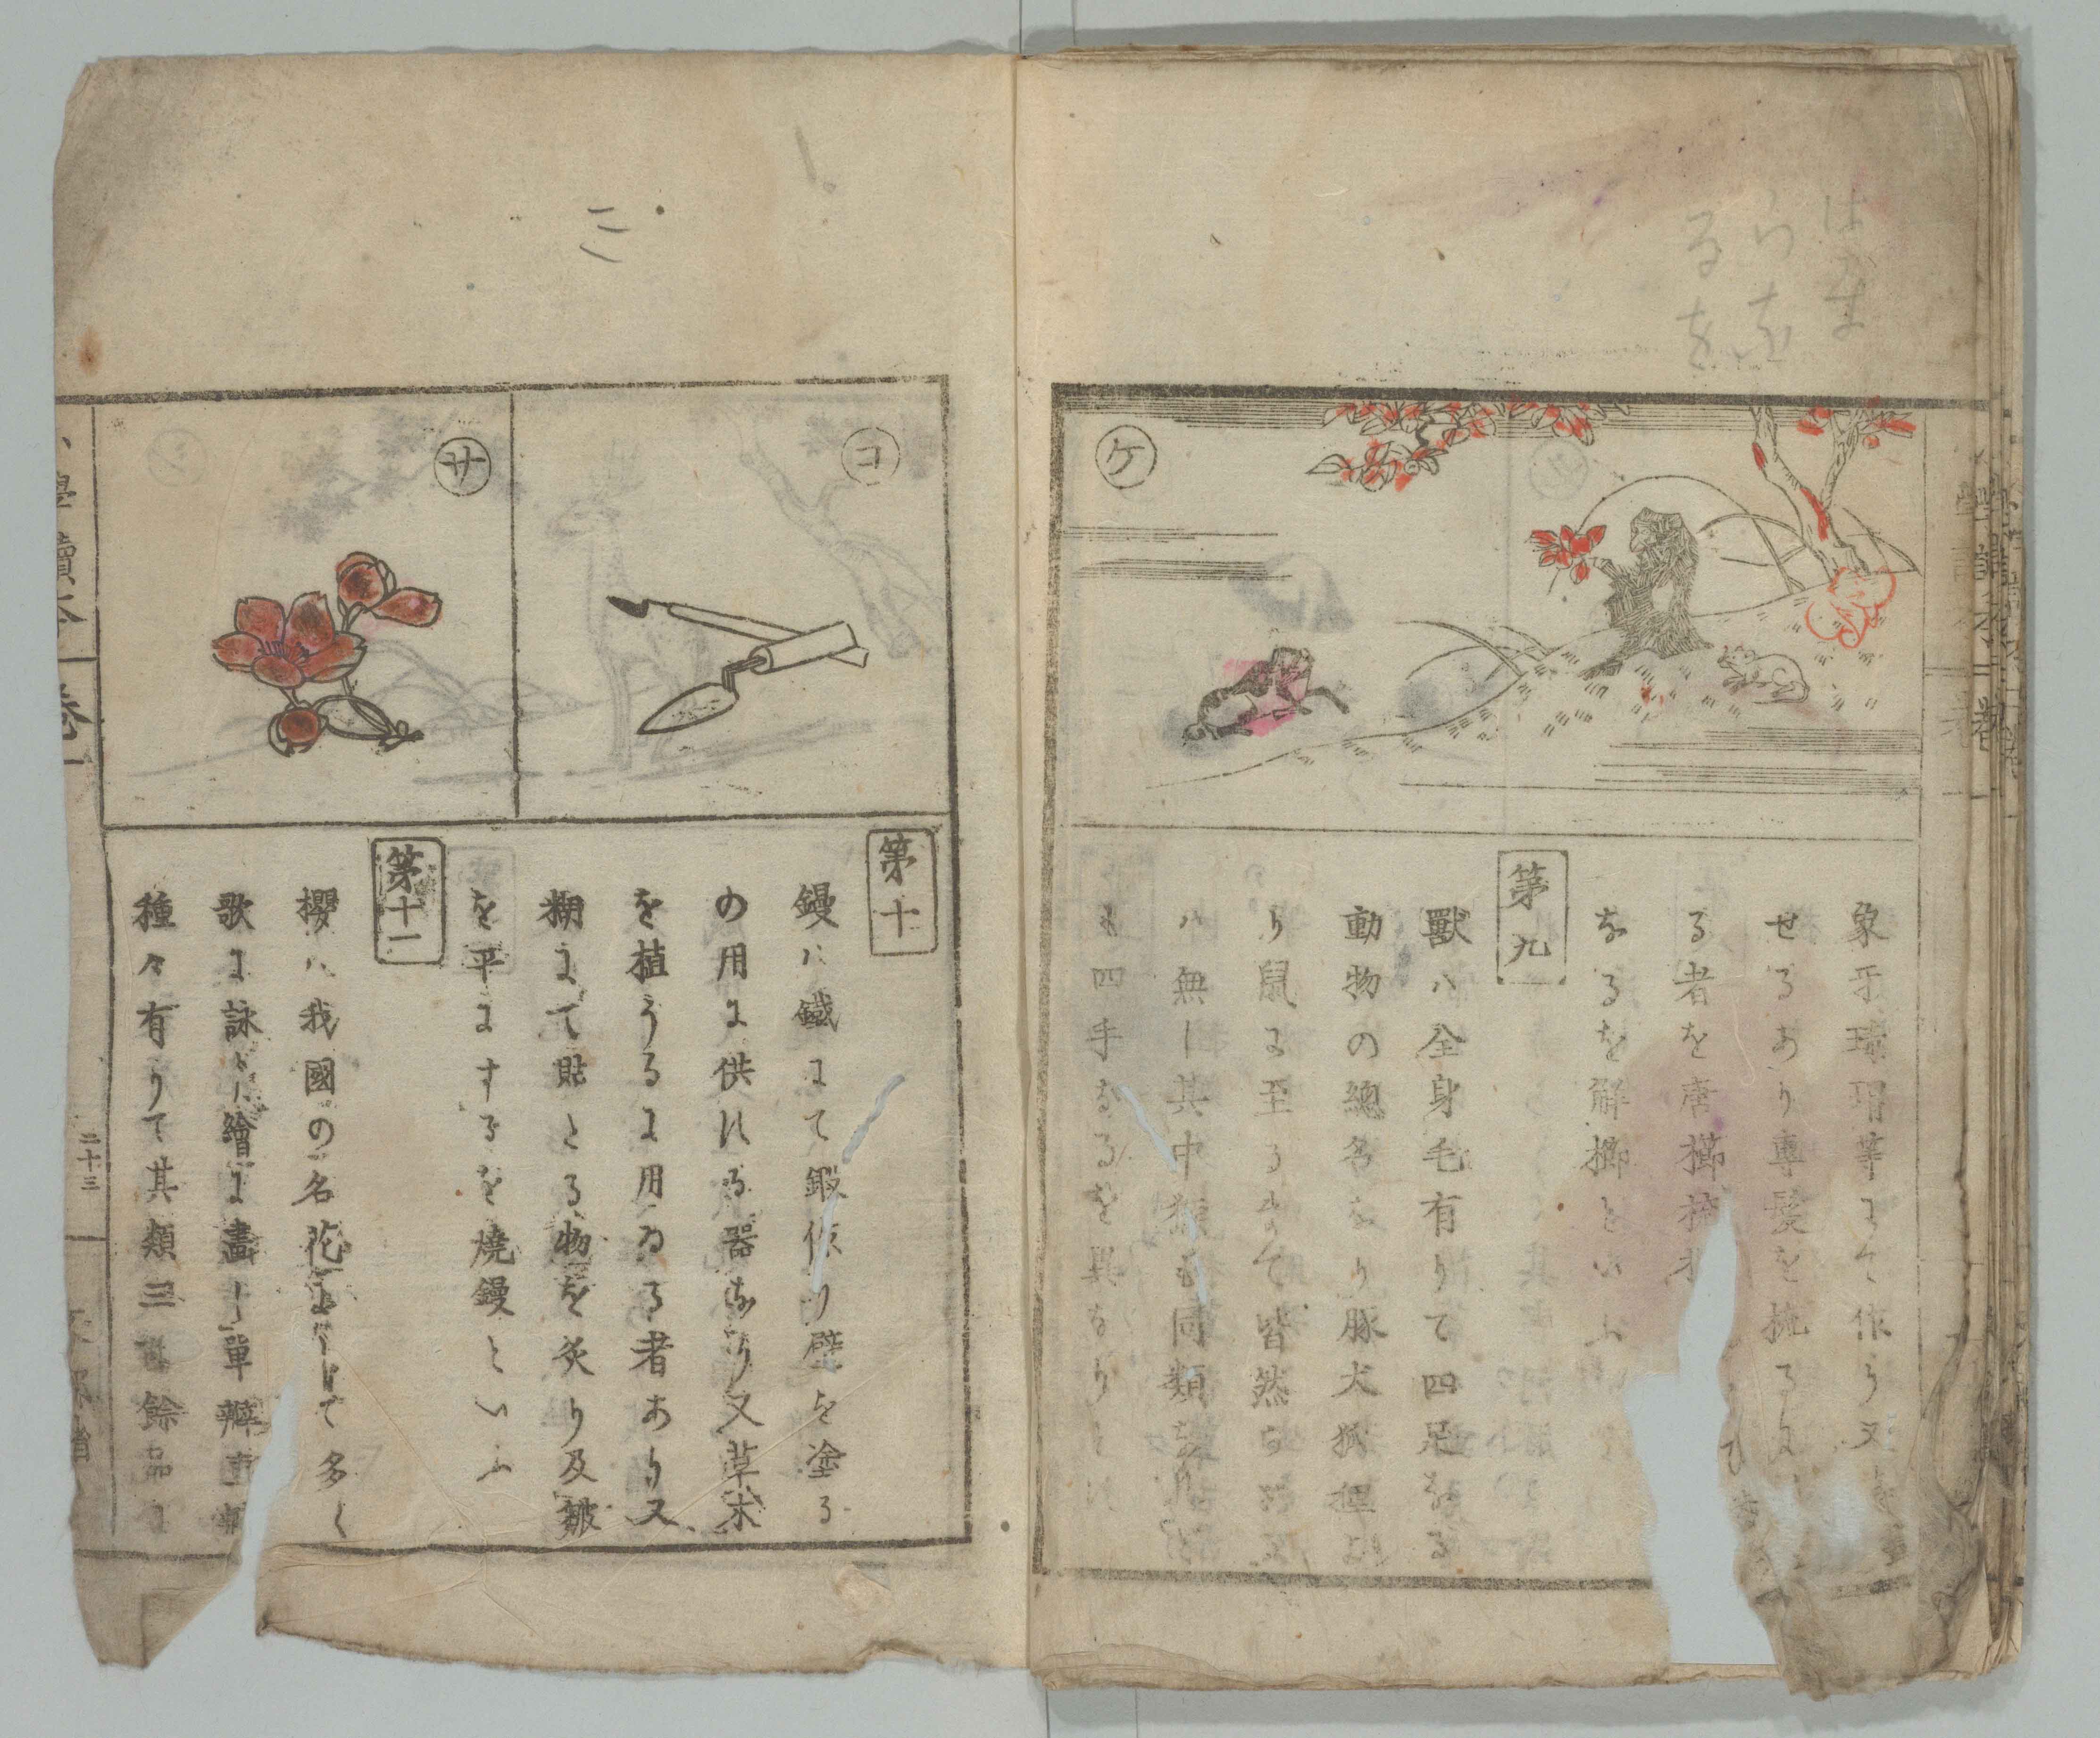 ケ
象牙瑇瑁等にて作り又
せるあり専髪を梳るに
る者を唐櫛梳
なるを解櫛といふ
第九
獣ハ全身毛有りて四足なる
動物の總名なり豚犬狐狸よ
り鼠に至るまて皆然
ハ無し其中猿も同類なれと
も四手なるを異なりとす
コ
サ
第十
鏝ハ鐵にて鍛作り壁を塗る
の用に供する器なり又草木
を植うるに用ゐる者あり又
糊にて貼たる物を炙り及皺
を平にするを燒鏝といふ
第十一
櫻ハ我國の名花にして多く
歌に詠し繪に畫し單瓣重瓣
種々有りて其類三百餘品に
小學讀本
卷一
二十三
文部省